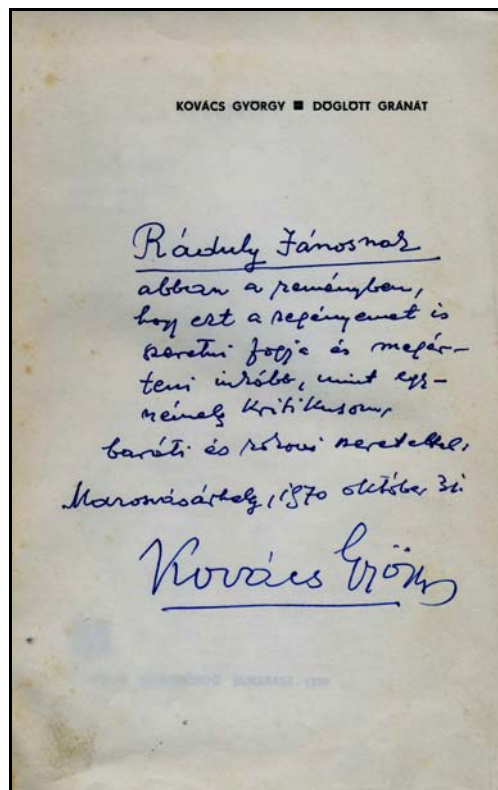 KOVÁCS GYÖRGY ■ DÖGLÖTT GRÁNÁT
Ráduly Jánosnak
abban a reményben,
hogy ezt a regényemet is
szeretni fogja és megér-
teni inkább, mint egy-
némely kritikusom,
baráti és szeretettel,
Marosvásárhely, 1970 október 31.
Kovács György